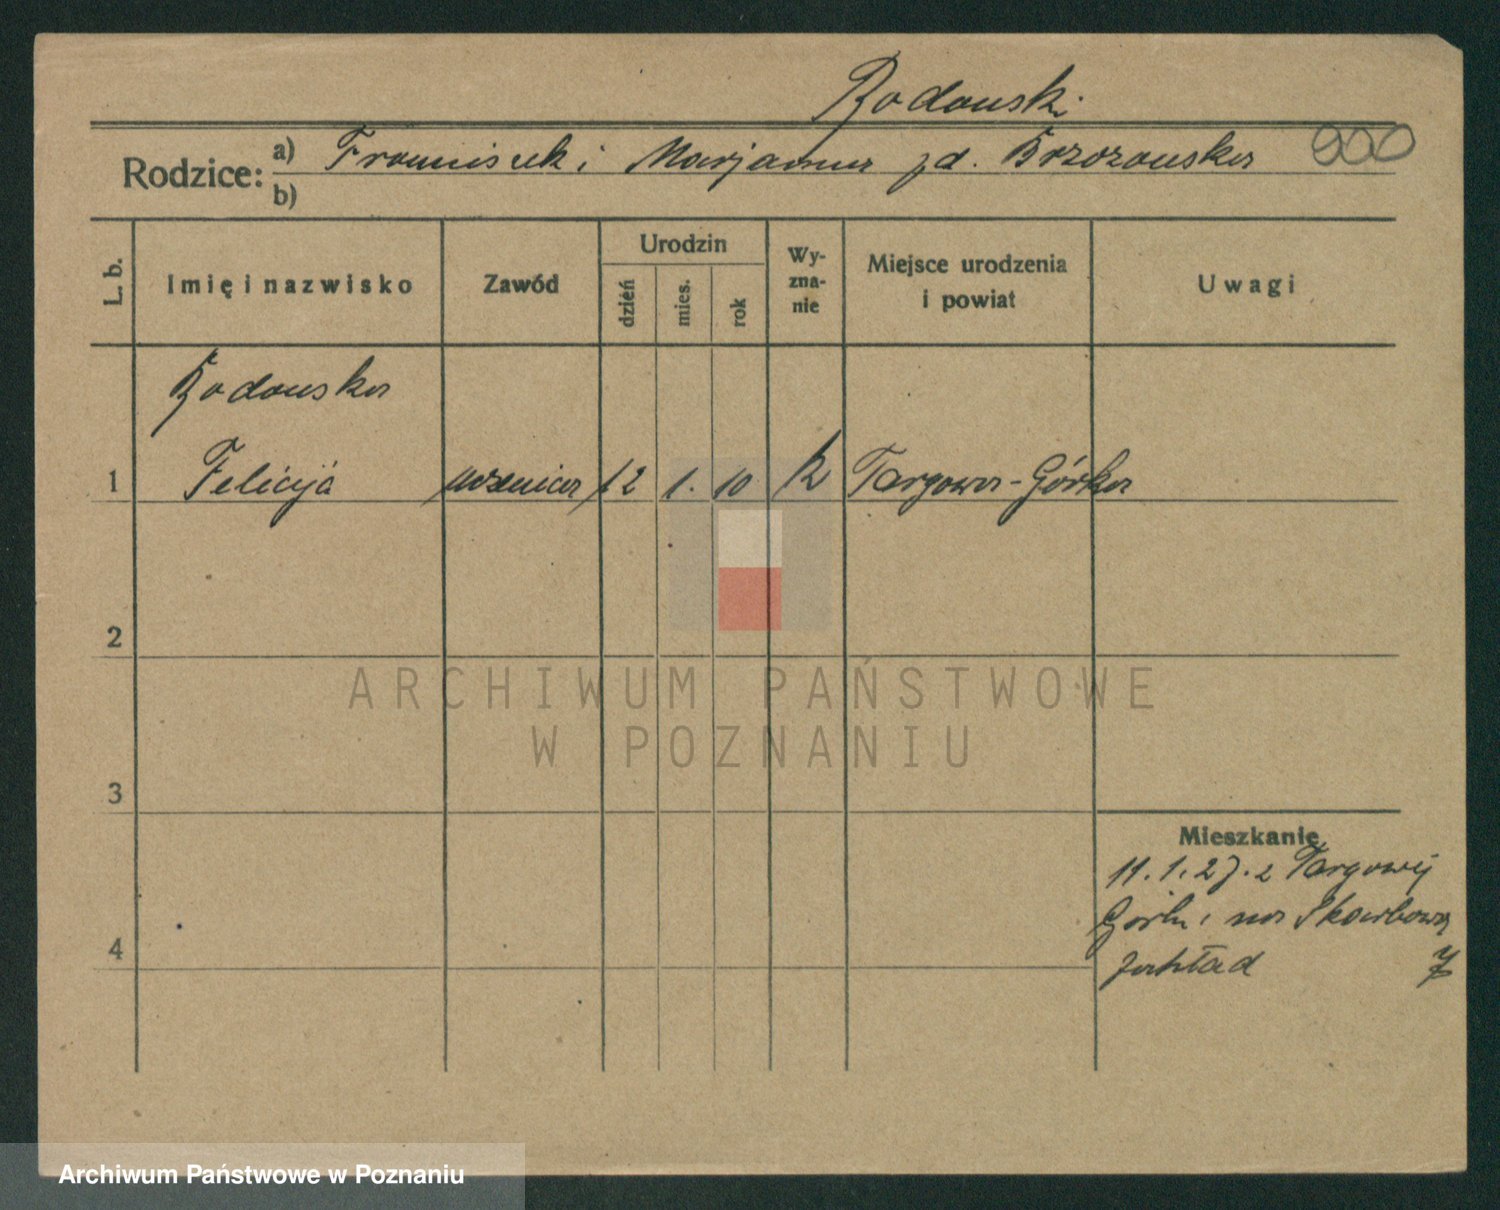 Rodowski
Rodzice: a) Franciszek i Marjanna zd. Brzozowska
b)
900
L. b.
Imię i nazwisko
Zawód
Urodzin
dzień
mies.
rok
Wy-
zna-
nie
Miejsce urodzenia
i powiat
Uwagi
Rodowska
1 Felicija uczenica 12 1. 10 k Targowa-Górka
2
3
4
Mieszkanie
11.1.27. z Targowej
Górki na Skarbową
zakład 7
ARCHIWUM PAŃSTWOWE
W POZNANIU
Archiwum Państwowe w Poznaniu